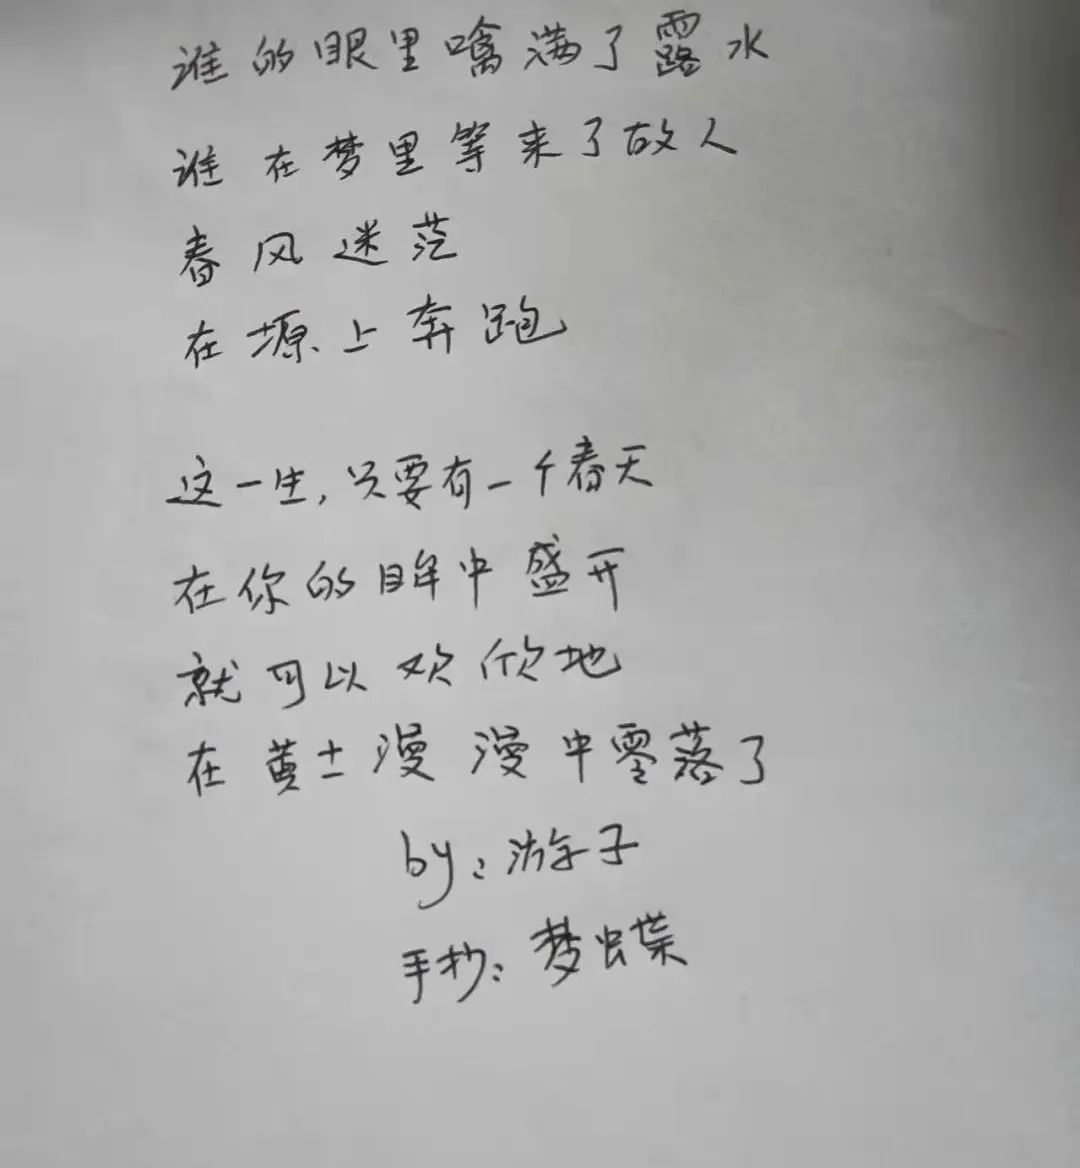 谁的眼里噙满了露水
谁在梦里等来了故人
春风迷茫
在塬上奔跑
这一生,只要有一个春天
在你的眸中盛开
就可以欢欣地
在黄土漫漫中零落了
by:游子
手抄:梦蝶